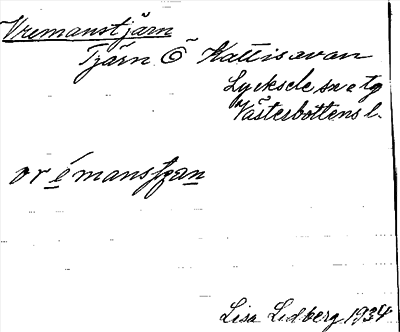 Vremanstjärn
Tjärn Ö Kattisavan
Lycksele sn o tg
Västerbottens l.
vrémanstjan
Lisa Lidberg 1934